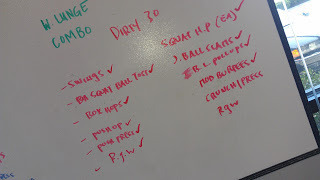 W LUNGE
COMBO
DIRTY 30
- SWINGS ✓
- SQUAT BALL TOSS ✓
- BOX HOPS ✓
- PUSHUP ✓
- PUSH PRESS ✓
- R.g.w ✓
SQUAT H.P (EA) ✓
BALL SEATS ✓
B.L. PUSHUPS ✓
MOD BURPEES ✓
CRUNCH/PRESS
Rgw